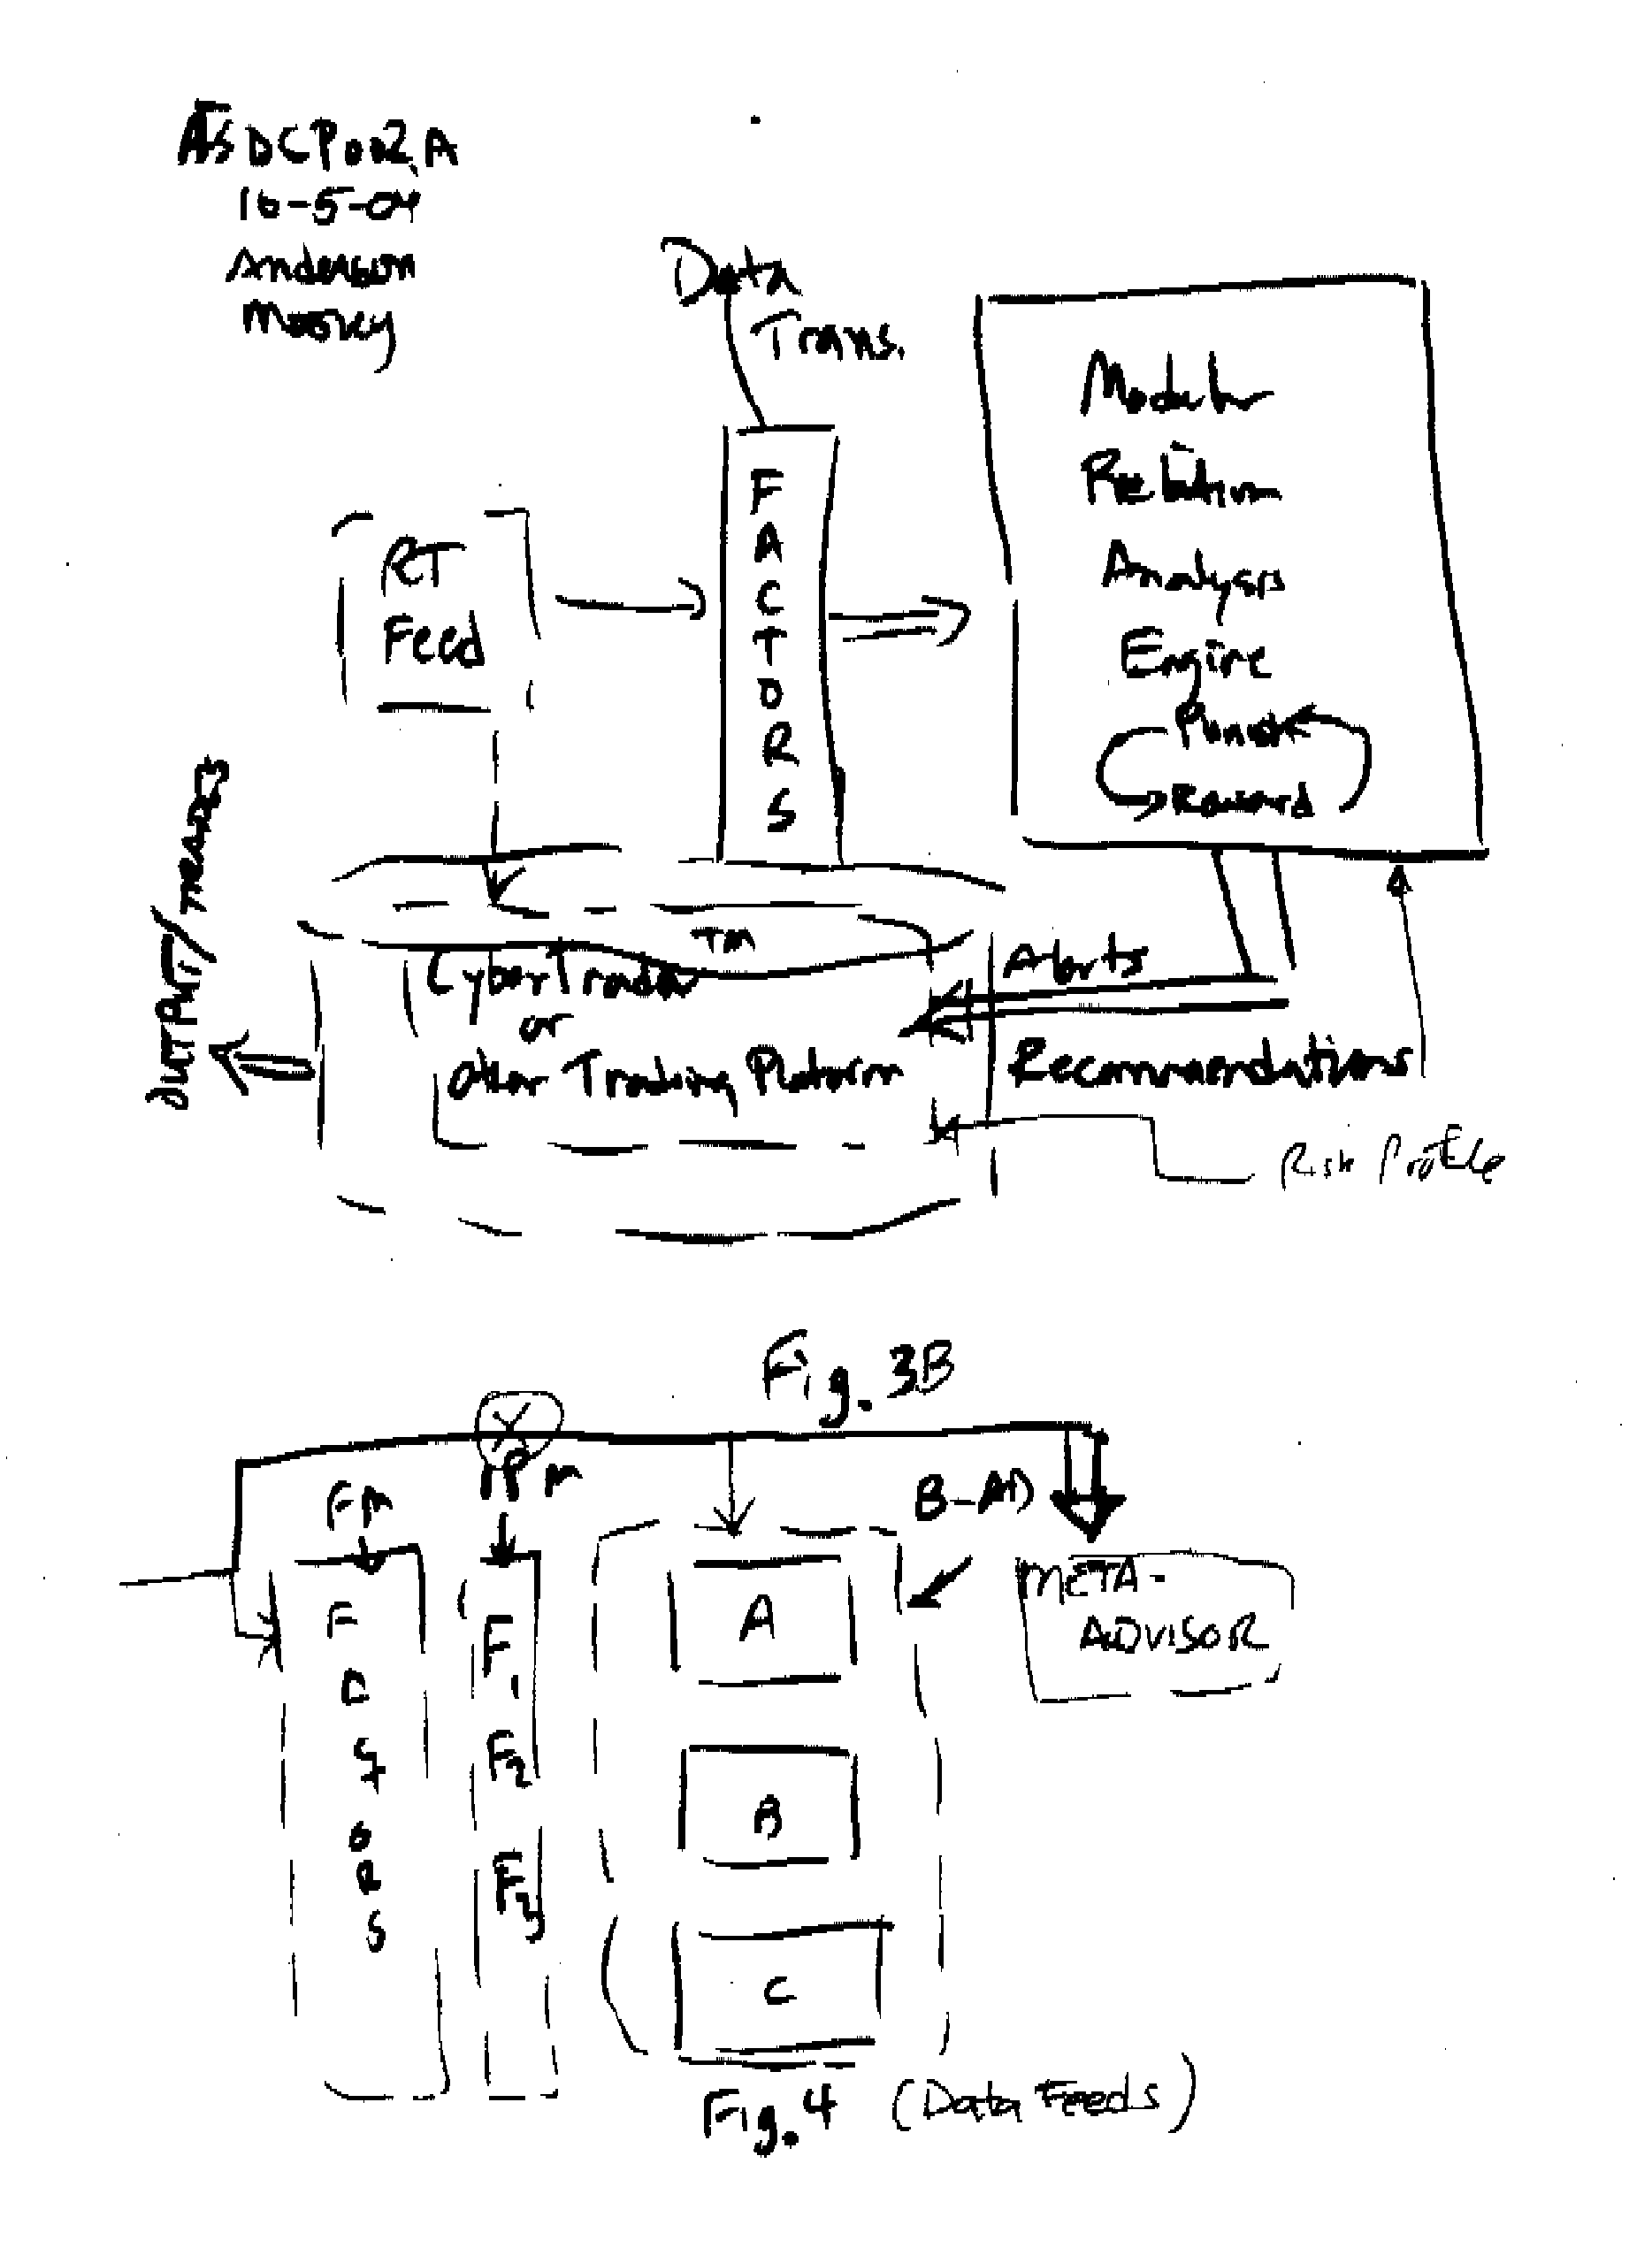 ASDCP002.A
10-5-04
Anderson
Data
Trans.
RT
Feed
FACTORS
Modular
Relation
Analysis
Engine
Punish
Reward
OUTPUT/
TM
CyberTrader
or
Other Trading Platform
Alerts
Recommendations
Risk Profile
Fig. 3B
X
FM
IPM
B-AD
FACTORS
F1
F2
F3
A
B
C
META-
ADVISOR
Fig. 4 (Data Feeds)